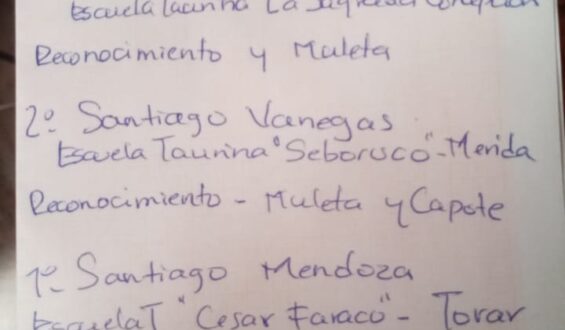 Escuela Taurina La
Reconocimiento y Muleta
2º. Santiago Vanegas
Escuela Taurina "Seboruco"-Merida
Reconocimiento - Muleta y Capote
1º- Santiago Mendoza
Escuela T "Cesar Faraco" - Tovar